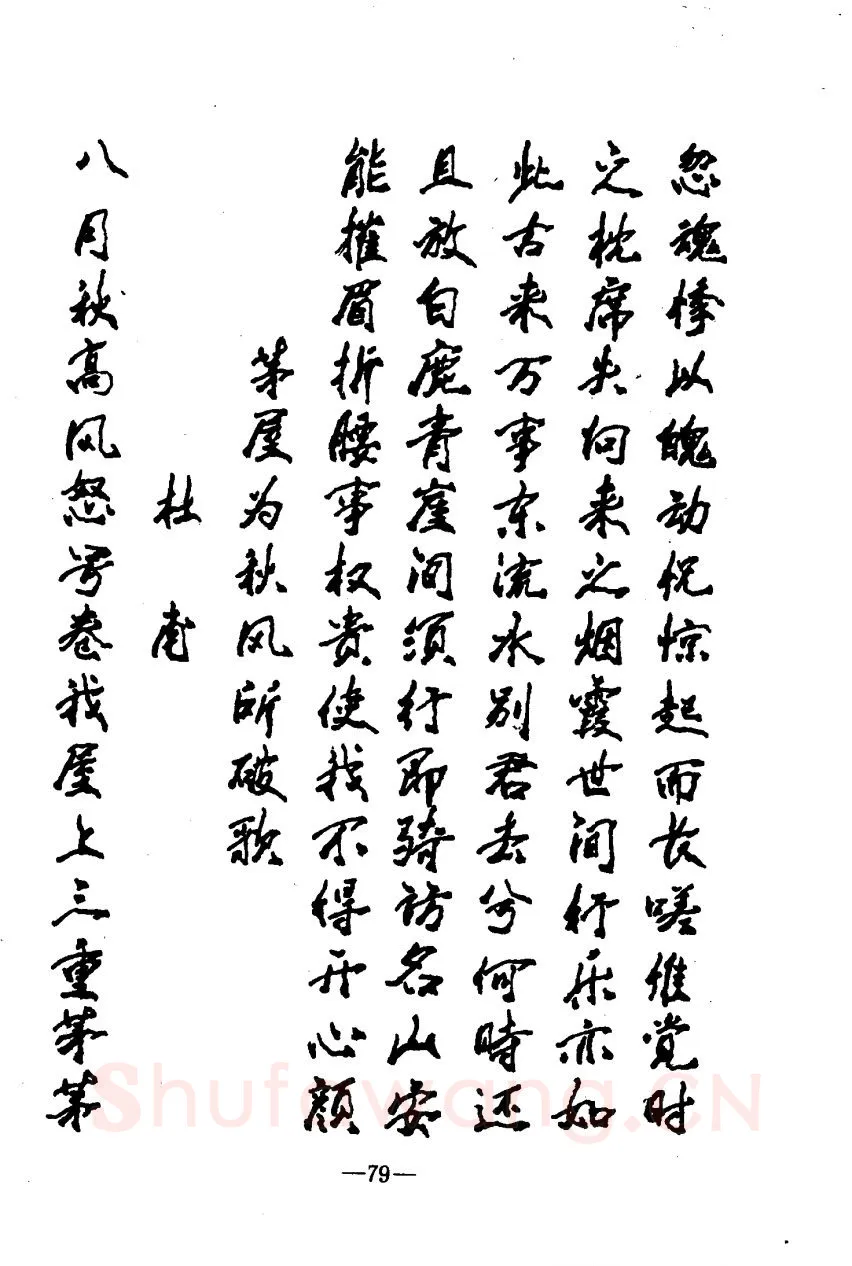 忽魂悸以魄动怳惊起而长嗟惟觉时
之枕席失向来之烟霞世间行乐亦如
此古来万事东流水别君去兮何時还
且放白鹿青崖间须行即骑访名山安
能摧眉折腰事权贵使我不得开心颜
茅屋为秋风所破歌
杜甫
八月秋高风怒号卷我屋上三重茅茅
—79—
Shufawang.CN